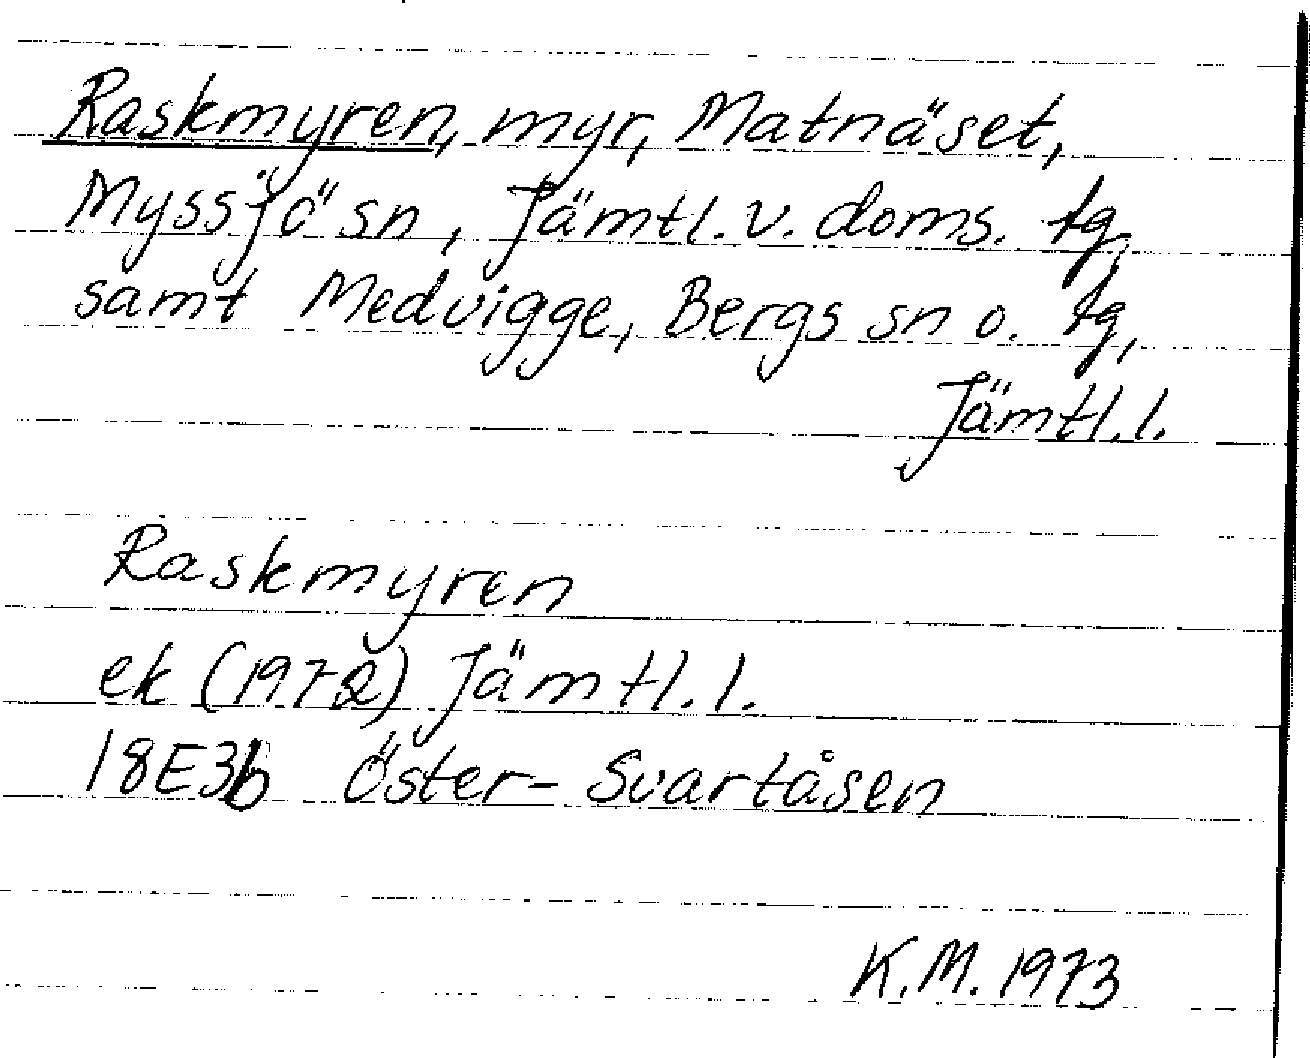 Raskmyren, myr, Matnäset,
Myssjö sn, Jämtl. v. doms. tg,
samt Medvigge, Bergs sn o. tg,
Jämtl. l.
Raskmyren
ek (1972) Jämtl. l.
18E3b Öster-Svartåsen
K.M. 1973